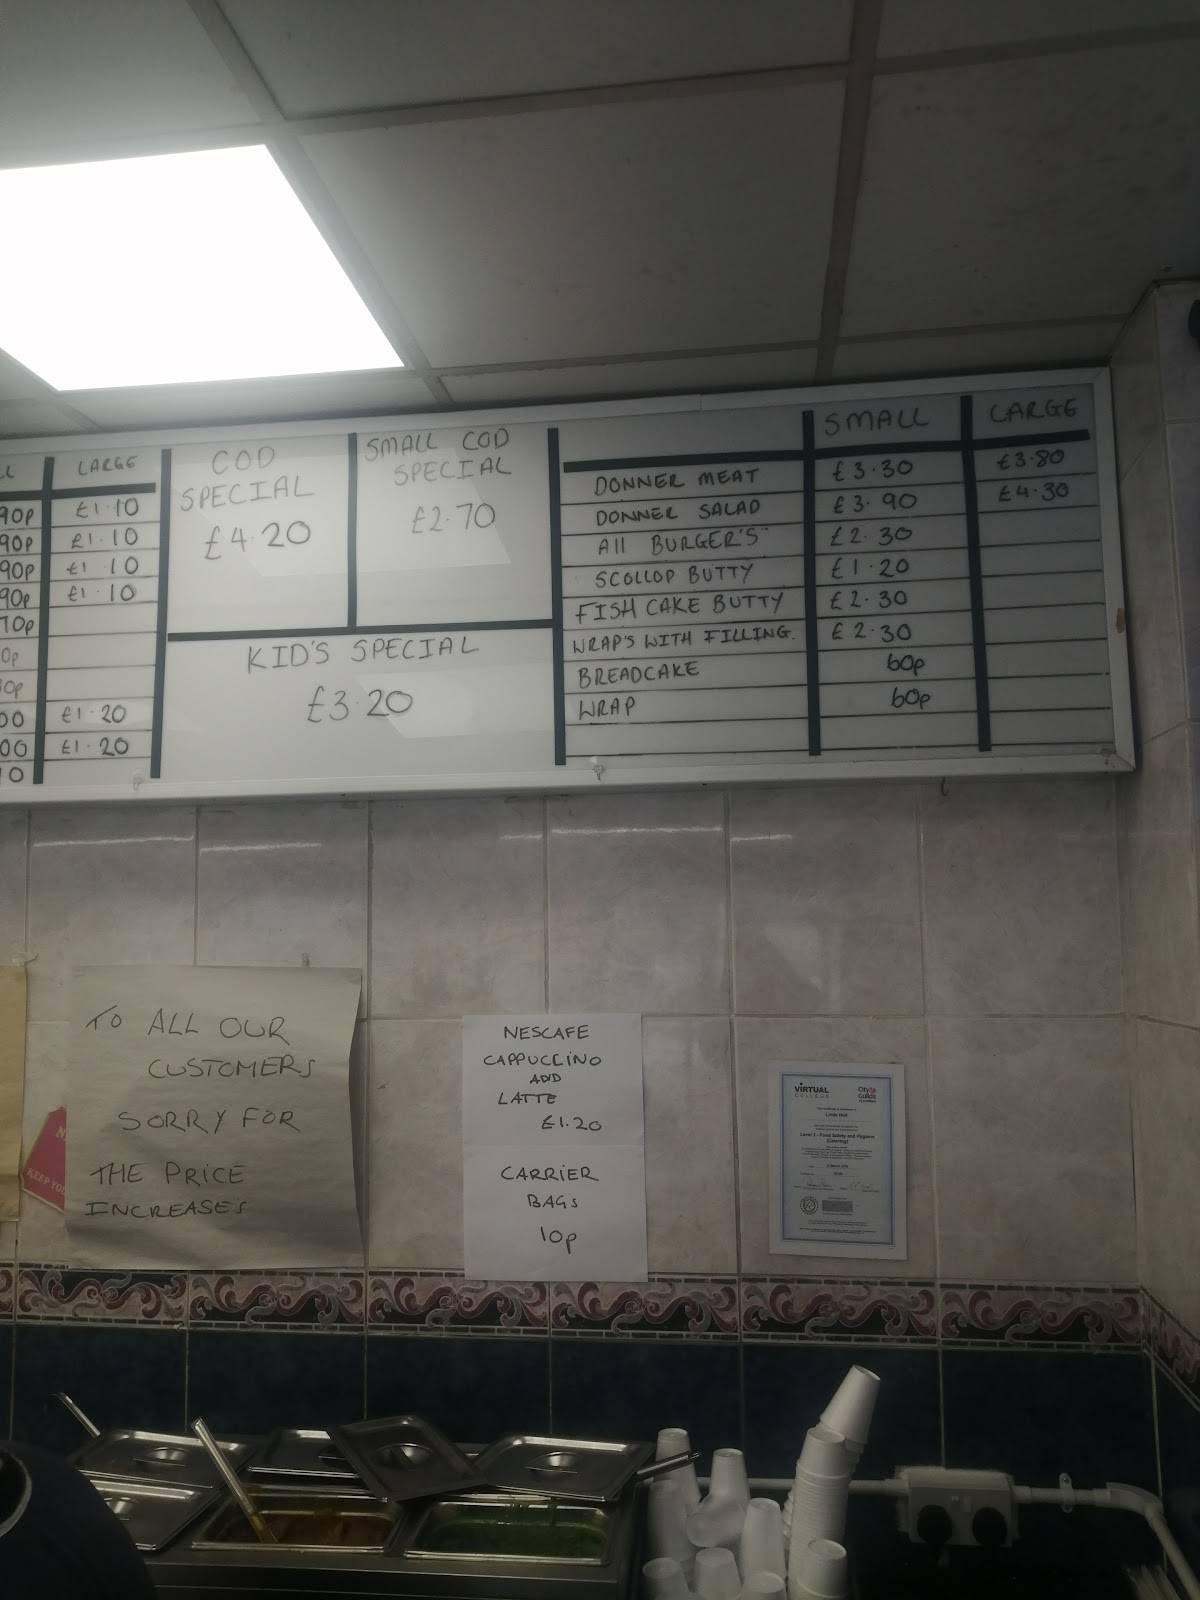 LARGE
90p £1.10
90p £1.10
90p £1.10
90p £1.10
70p
£1.20
£1.20
COD
SPECIAL
£4.20
SMALL COD
SPECIAL
£2.70
KID'S SPECIAL
£3.20
SMALL LARGE
DONNER MEAT £3.30 £3.80
DONNER SALAD £3.90 £4.30
All BURGER'S" £2.30
SCOLLOP BUTTY £1.20
FISH CAKE BUTTY £2.30
WRAP'S WITH FILLING. £2.30
BREADCAKE 60p
WRAP 60p
TO ALL OUR
CUSTOMERS
SORRY FOR
THE PRICE
INCREASES
KEEP YOU
NESCAFE
CAPPUCCINO
AND
LATTE
£1.20
CARRIER
BAGS
10p
VIRTUAL
COLLEGE
City &
Guilds
Level 2 - Food Safety and Hygiene
(Catering)